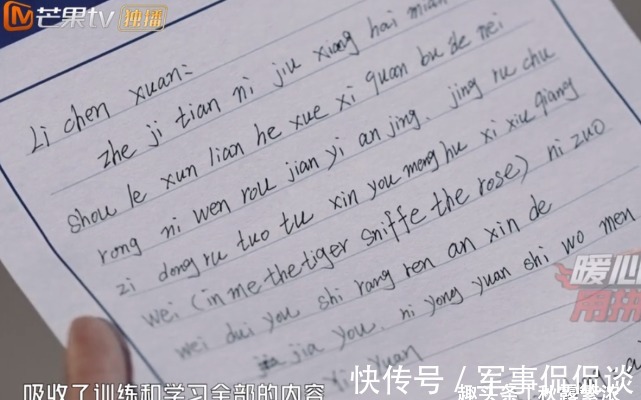 芒果tv 独播
Li chen xuan:
zhe ji tian ni jiu xiang hai mian
shou le xun lian he xue xi quan bu de nei
rong ni wen rou jian yi an jing, jing ru chu
zi dong ru tuo tu xin you meng hu xi xiu qiang
wei (in me the tiger sniffe the rose) ni zuo
wei dui you shi rang ren an xin de
jia you. ni yong yuan shi wo men
yuan
暖心
吸收了训练和学习全部的内容
快传号/军事侃侃谈
趣头条